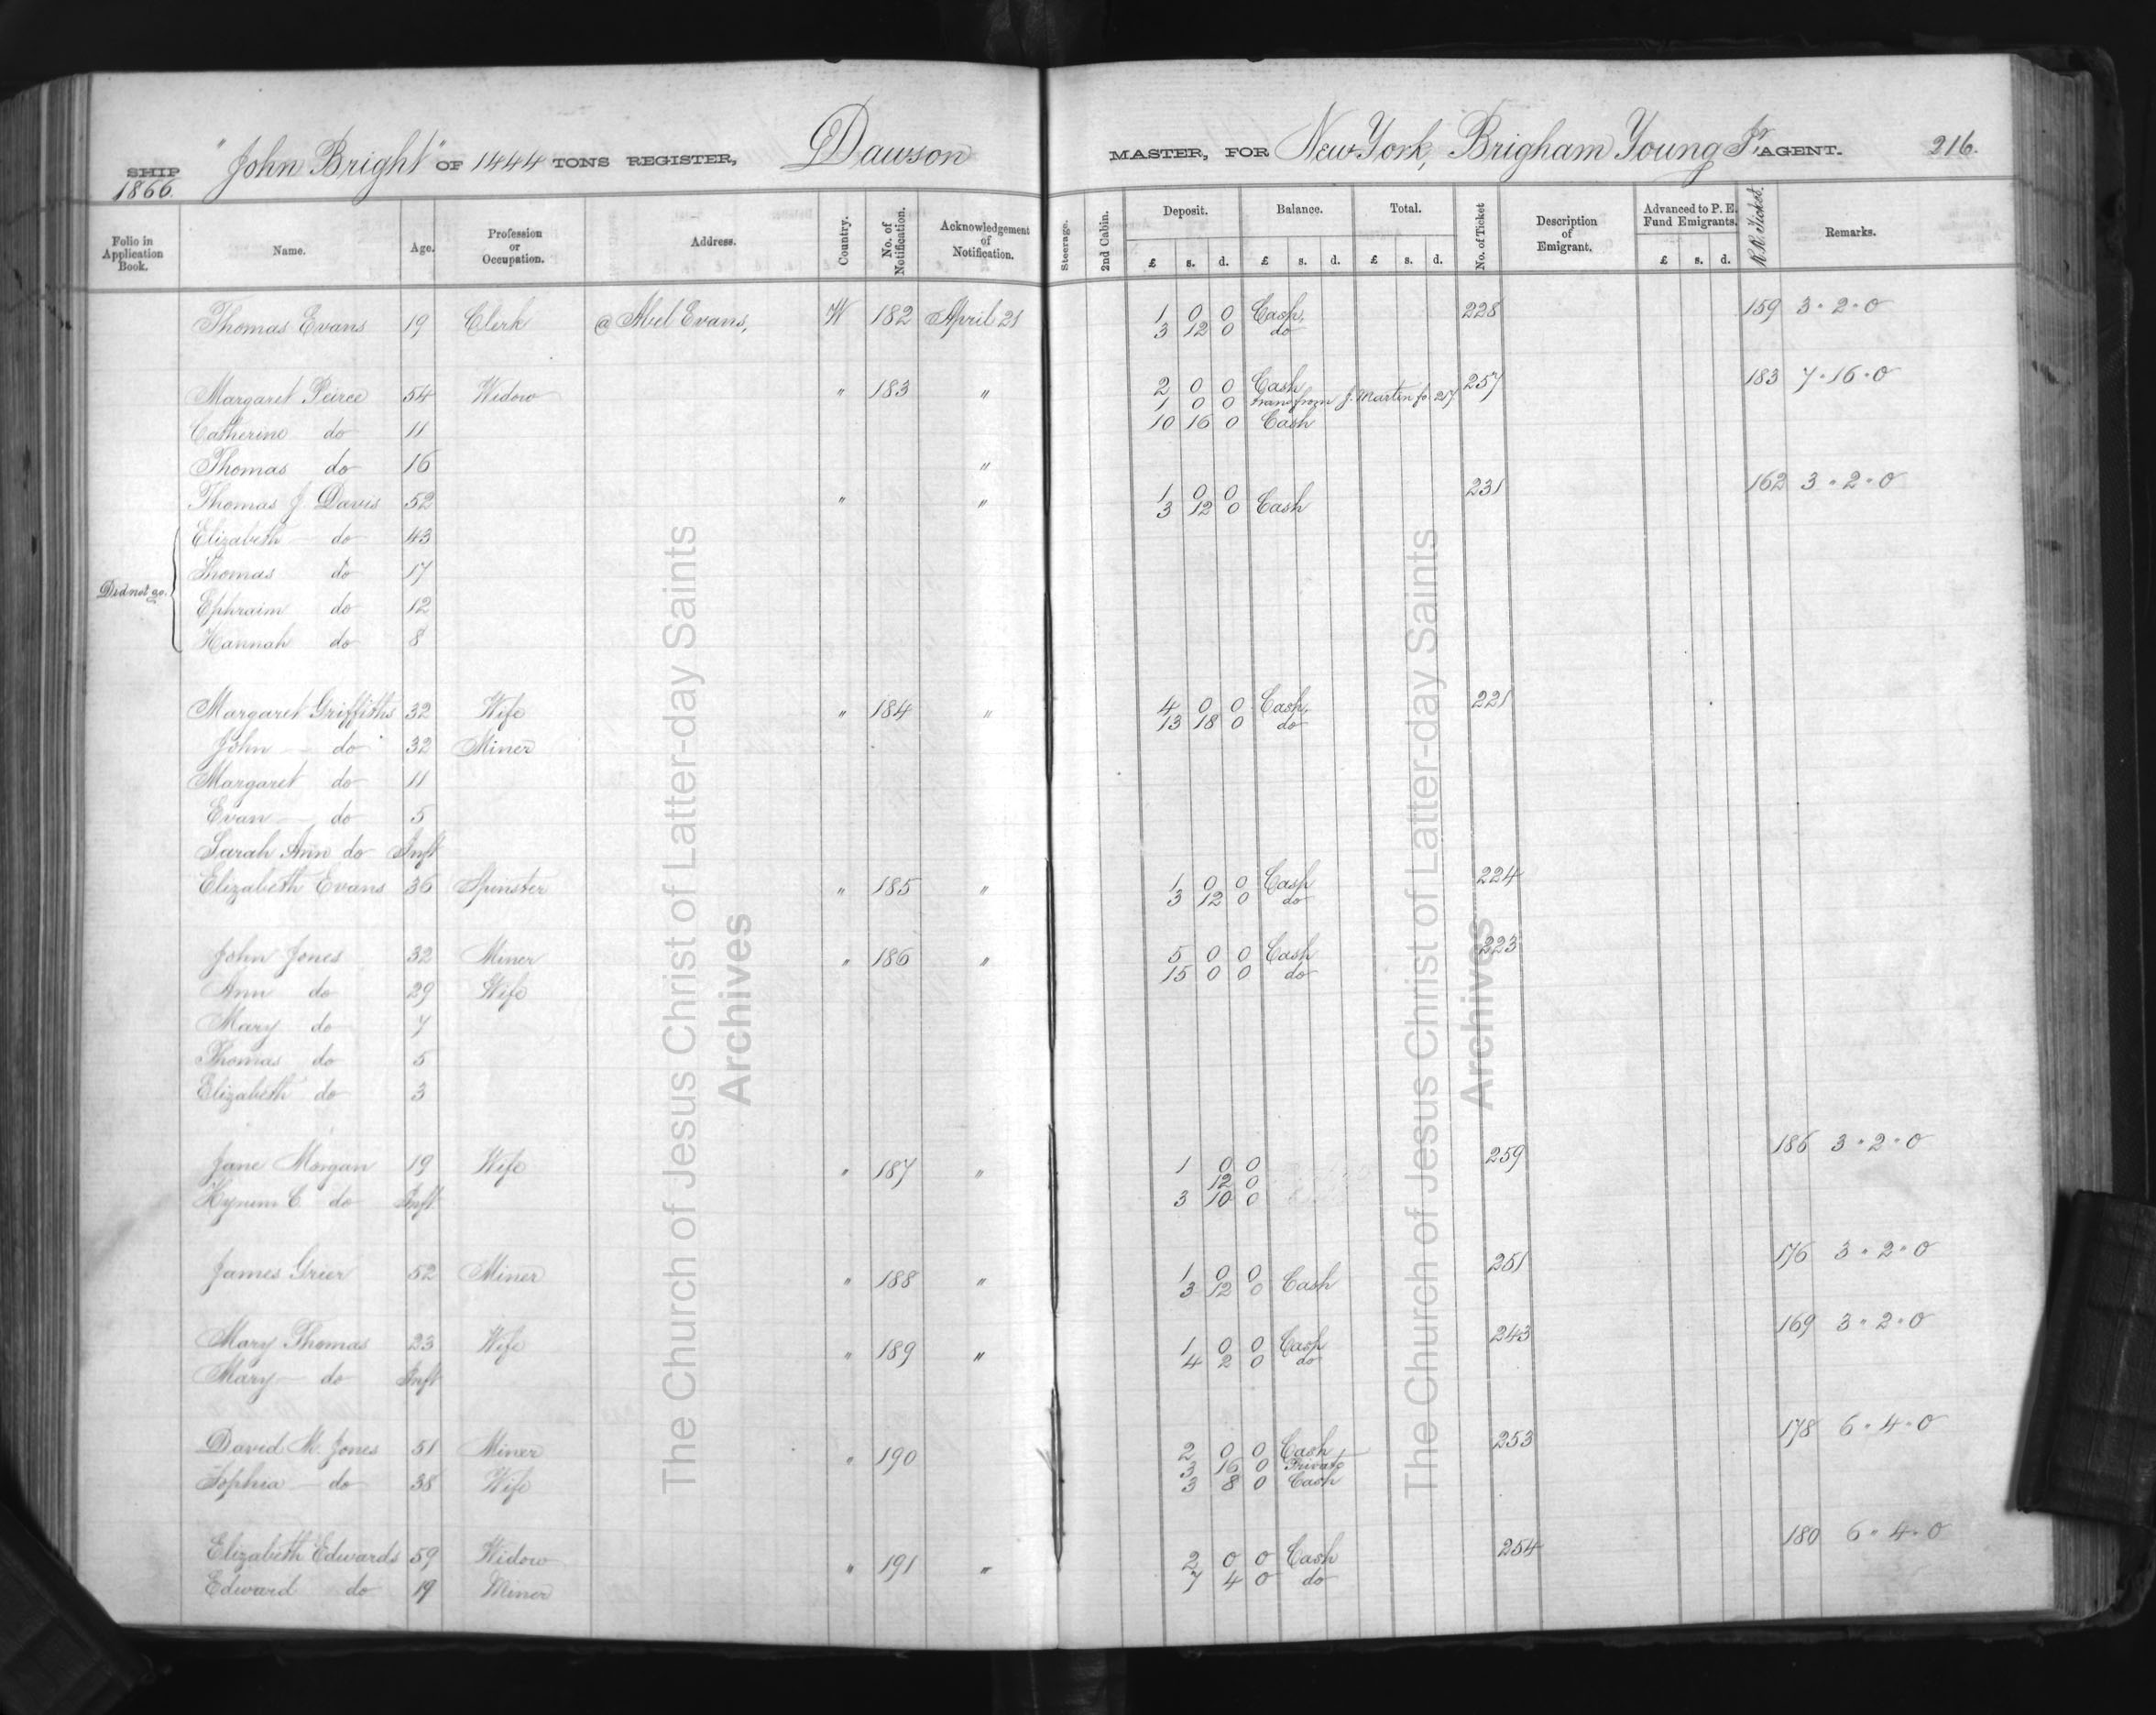 SHIP "John Bright" OF 1444 TONS REGISTER, Dawson MASTER, FOR New York, Brigham Young Jr. AGENT. 216.
1866.
Folio in Application Book. Name. Age. Profession or Occupation. Address. Country. No. of Notification. Acknowledgement of Notification. Steerage. 2nd Cabin. Deposit. Balance. Total. No. of Ticket Description of Emigrant. Advanced to P. E. Fund Emigrants. R.R. Ticket. Remarks.
£ s. d. £ s. d. £ s. d. £ s. d.
Thomas Evans 19 Clerk @ Abel Evans, W 182 April 21 1 0 0 Cash, 228 159 3 " 2 " 0
3 12 0 do
Margaret Peirce 54 Widow " 183 " 2 0 0 Cash 257 183 7 " 16 " 0
1 0 0 trans from J. Martin fo. 217
Catherine do 11 10 16 0 Cash
Thomas do 16 "
Thomas J. Davis 52 " " 1 0 0 231 162 3 " 2 " 0
3 12 0 Cash
Elizabeth do 43
Thomas do 17
Did not go.
Ephraim do 12
Hannah do 8
Margaret Griffiths 32 Wife " 184 " 4 0 0 Cash, 221
13 18 0 do
John do 32 Miner
Margaret do 11
Evan do 5
Sarah Ann do Inft
Elizabeth Evans 36 Spinster " 185 " 1 0 0 Cash 224
3 12 0 do
John Jones 32 Miner " 186 " 5 0 0 Cash 223
15 0 0 do
Ann do 29 Wife
Mary do 7
Thomas do 5
Elizabeth do 3
Jane Morgan 19 Wife " 187 " 1 0 0 259 186 3 " 2 " 0
12 0
Hyrum C. do Inft. 3 10 0
James Grier 52 Miner " 188 " 1 0 0 251 176 3 " 2 " 0
3 12 0 Cash
Mary Thomas 23 Wife " 189 " 1 0 0 Cash 243 169 3 " 2 " 0
4 2 0 do
Mary do Inft
David M. Jones 51 Miner " 190 2 0 0 Cash 253 178 6 " 4 " 0
3 16 0 Private
Sophia do 38 Wife 3 8 0 Cash
Elizabeth Edwards 59 Widow " 191 " 2 0 0 Cash 254 180 6 " 4 " 0
7 4 0 do
Edward do 19 Miner
The Church of Jesus Christ of Latter-day Saints
Archives
The Church of Jesus Christ of Latter-day Saints
Archives